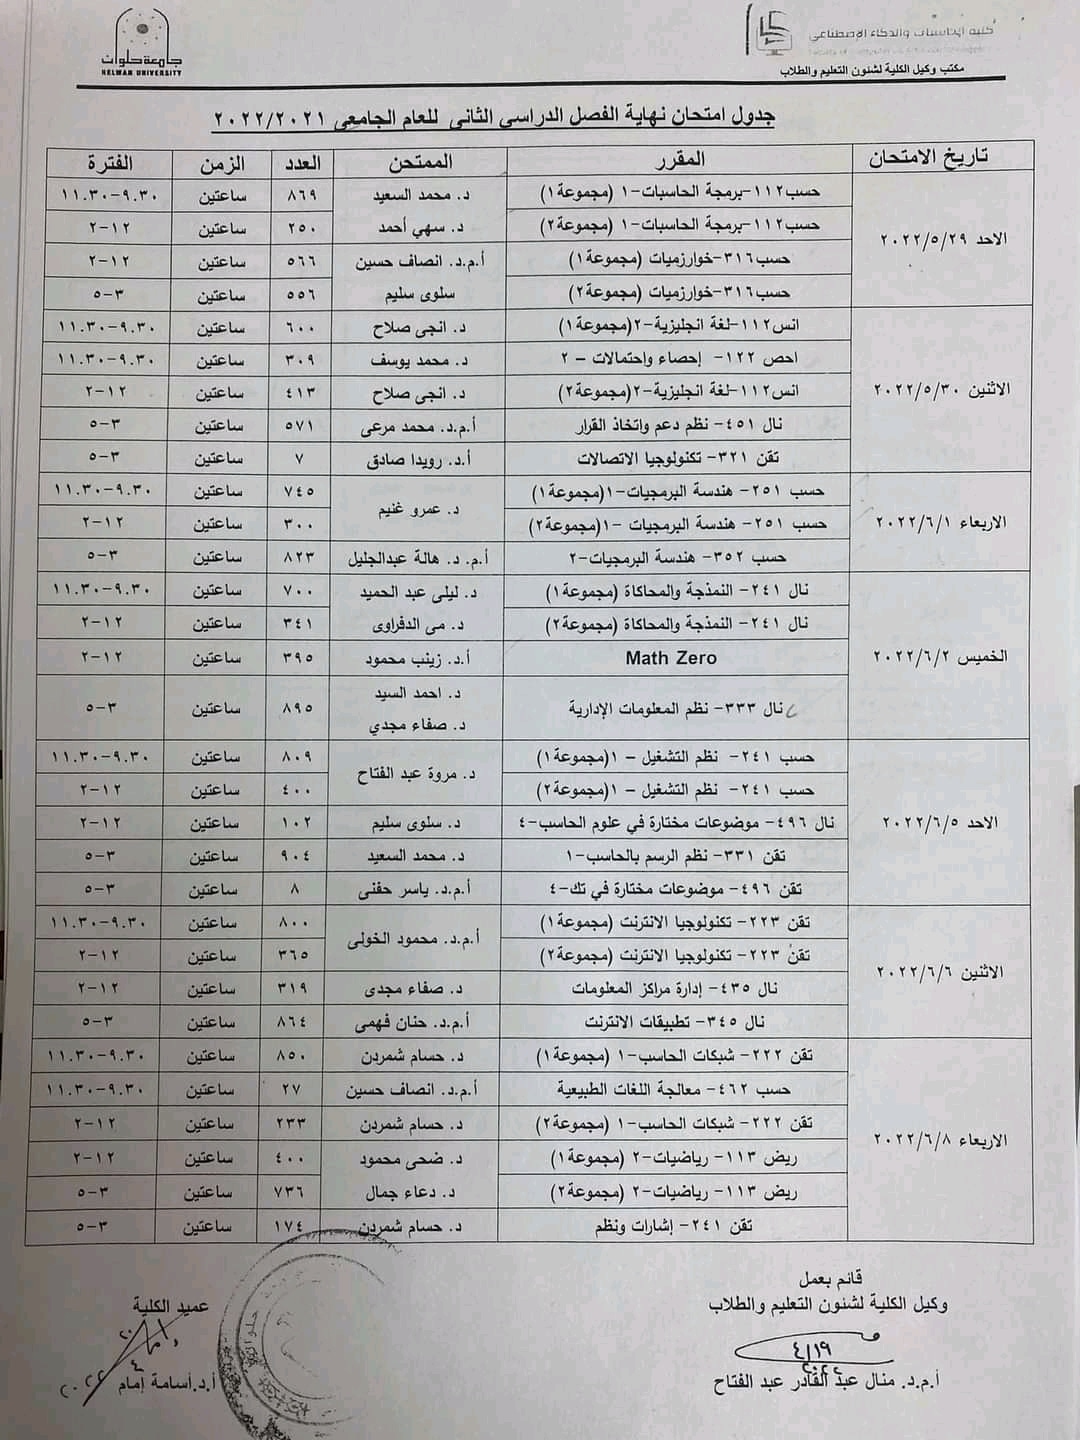 جامعة حلوان
HELWAN UNIVERSITY
كلية الحاسبات والذكاء الإصطناعي
مكتب وكيل الكلية لشئون التعليم والطلاب
جدول امتحان نهاية الفصل الدراسى الثانى للعام الجامعى ٢٠٢٢/٢٠٢١
تاريخ الامتحان المقرر الممتحن العدد الزمن الفترة
الاحد ٢٠٢٢/٥/٢٩
حسب١١٢-برمجة الحاسبات-١ (مجموعة١) د. محمد السعيد ٨٦٩ ساعتين ٩.٣٠-١١.٣٠
حسب١١٢-برمجة الحاسبات-١ (مجموعة٢) د. سهي أحمد ٢٥٠ ساعتين ١٢-٢
حسب٣١٦-خوارزميات (مجموعة١) أ.م.د. انصاف حسين ٥٦٦ ساعتين ١٢-٢
حسب٣١٦-خوارزميات (مجموعة٢) سلوى سليم ٥٥٦ ساعتين ٣-٥
الاثنين ٢٠٢٢/٥/٣٠
انس١١٢-لغة انجليزية-٢(مجموعة١) د. انجى صلاح ٦٠٠ ساعتين ٩.٣٠-١١.٣٠
احص ١٢٢- إحصاء واحتمالات – ٢ د. محمد يوسف ٣٠٩ ساعتين ٩.٣٠-١١.٣٠
انس١١٢-لغة انجليزية-٢(مجموعة٢) د. انجى صلاح ٤١٣ ساعتين ١٢-٢
نال ٤٥١- نظم دعم واتخاذ القرار أ.م.د. محمد مرعى ٥٧١ ساعتين ٣-٥
تقن ٣٢١- تكنولوجيا الاتصالات أ.د. رويدا صادق ٧ ساعتين ٣-٥
الاربعاء ٢٠٢٢/٦/١
حسب ٢٥١- هندسة البرمجيات-١(مجموعة١) د. عمرو غنيم ٧٤٥ ساعتين ٩.٣٠-١١.٣٠
حسب ٢٥١- هندسة البرمجيات -١(مجموعة٢) ٣٠٠ ساعتين ١٢-٢
حسب ٣٥٢- هندسة البرمجيات-٢ أ.م. د. هالة عبدالجليل ٨٢٣ ساعتين ٣-٥
الخميس ٢٠٢٢/٦/٢
نال ٢٤١- النمذجة والمحاكاة (مجموعة١) د. ليلى عبد الحميد ٧٠٠ ساعتين ٩.٣٠-١١.٣٠
نال ٢٤١- النمذجة والمحاكاة (مجموعة٢) د. مى الدفراوى ٣٤١ ساعتين ١٢-٢
Math Zero أ.د. زينب محمود ٣٩٥ ساعتين ١٢-٢
نال ٣٣٣- نظم المعلومات الإدارية د. احمد السيد ٨٩٥ ساعتين ٣-٥
د. صفاء مجدي
الاحد ٢٠٢٢/٦/٥
حسب ٢٤١- نظم التشغيل – ١(مجموعة١) د. مروة عبد الفتاح ٨٠٩ ساعتين ٩.٣٠-١١.٣٠
حسب ٢٤١- نظم التشغيل – ١(مجموعة٢) ٤٠٠ ساعتين ١٢-٢
نال ٤٩٦- موضوعات مختارة في علوم الحاسب-٤ د. سلوى سليم ١٠٢ ساعتين ١٢-٢
تقن ٣٣١- نظم الرسم بالحاسب-١ د. محمد السعيد ٩٠٤ ساعتين ٣-٥
تقن ٤٩٦- موضوعات مختارة في تك-٤ أ.م.د. ياسر حفنى ٨ ساعتين ٣-٥
الاثنين ٢٠٢٢/٦/٦
تقن ٢٢٣- تكنولوجيا الانترنت (مجموعة١) أ.م.د. محمود الخولى ٨٠٠ ساعتين ٩.٣٠-١١.٣٠
تقن ٢٢٣- تكنولوجيا الانترنت (مجموعة٢) ٣٦٥ ساعتين ١٢-٢
نال ٤٣٥- إدارة مراكز المعلومات د. صفاء مجدى ٣١٩ ساعتين ١٢-٢
نال ٣٤٥- تطبيقات الانترنت أ.م.د. حنان فهمى ٨٦٤ ساعتين ٣-٥
الاربعاء ٢٠٢٢/٦/٨
تقن ٢٢٢- شبكات الحاسب-١ (مجموعة١) د. حسام شمردن ٨٥٠ ساعتين ٩.٣٠-١١.٣٠
حسب ٤٦٢- معالجة اللغات الطبيعية أ.م.د. انصاف حسين ٢٧ ساعتين ٩.٣٠-١١.٣٠
تقن ٢٢٢- شبكات الحاسب-١ (مجموعة٢) د. حسام شمردن ٢٣٣ ساعتين ١٢-٢
ريض ١١٣- رياضيات-٢ (مجموعة١) د. ضحى محمود ٤٠٠ ساعتين ١٢-٢
ريض ١١٣- رياضيات-٢ (مجموعة٢) د. دعاء جمال ٧٣٦ ساعتين ٣-٥
تقن ٢٤١- إشارات ونظم د. حسام شمردن ١٧٤ ساعتين ٣-٥
قائم بعمل
وكيل الكلية لشئون التعليم والطلاب
٤/١٩
٢٠٢٢
أ.م.د. منال عبد القادر عبد الفتاح
عميد الكلية
٢٠٢٢
أ.د.أسامة إمام
حلوان